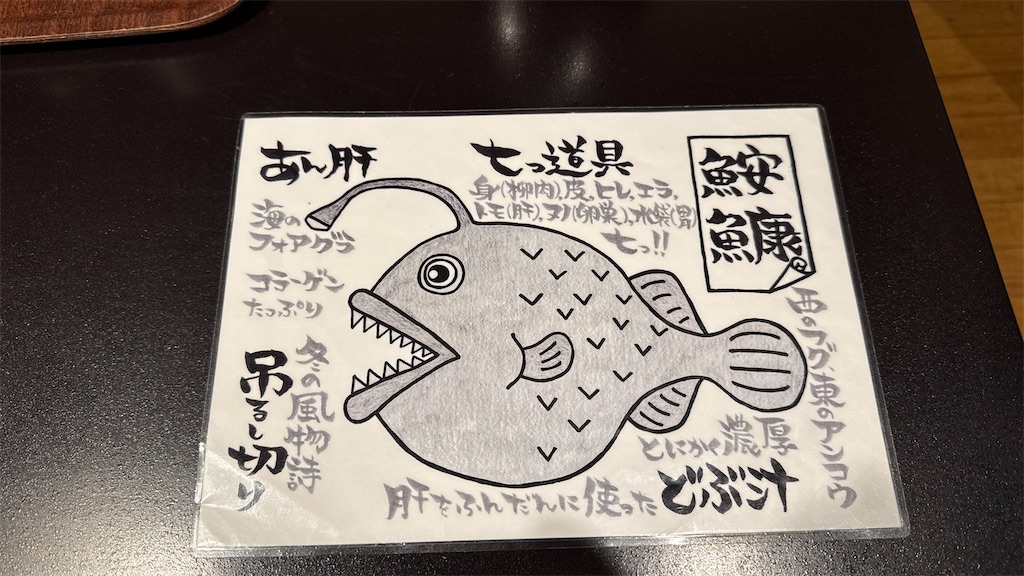 鮟
鱇
あん肝
海の
フォアグラ
コラーゲン
たっぷり
七つ道具
身(柳肉)、皮、ヒレ、エラ、
トモ(肝)、ヌノ(卵巣)、水袋(胃)
七つ!!
西のフグ、東のアンコウ
吊るし切り
冬の風物詩
とにかく濃厚
肝をふんだんに使った
どぶ汁